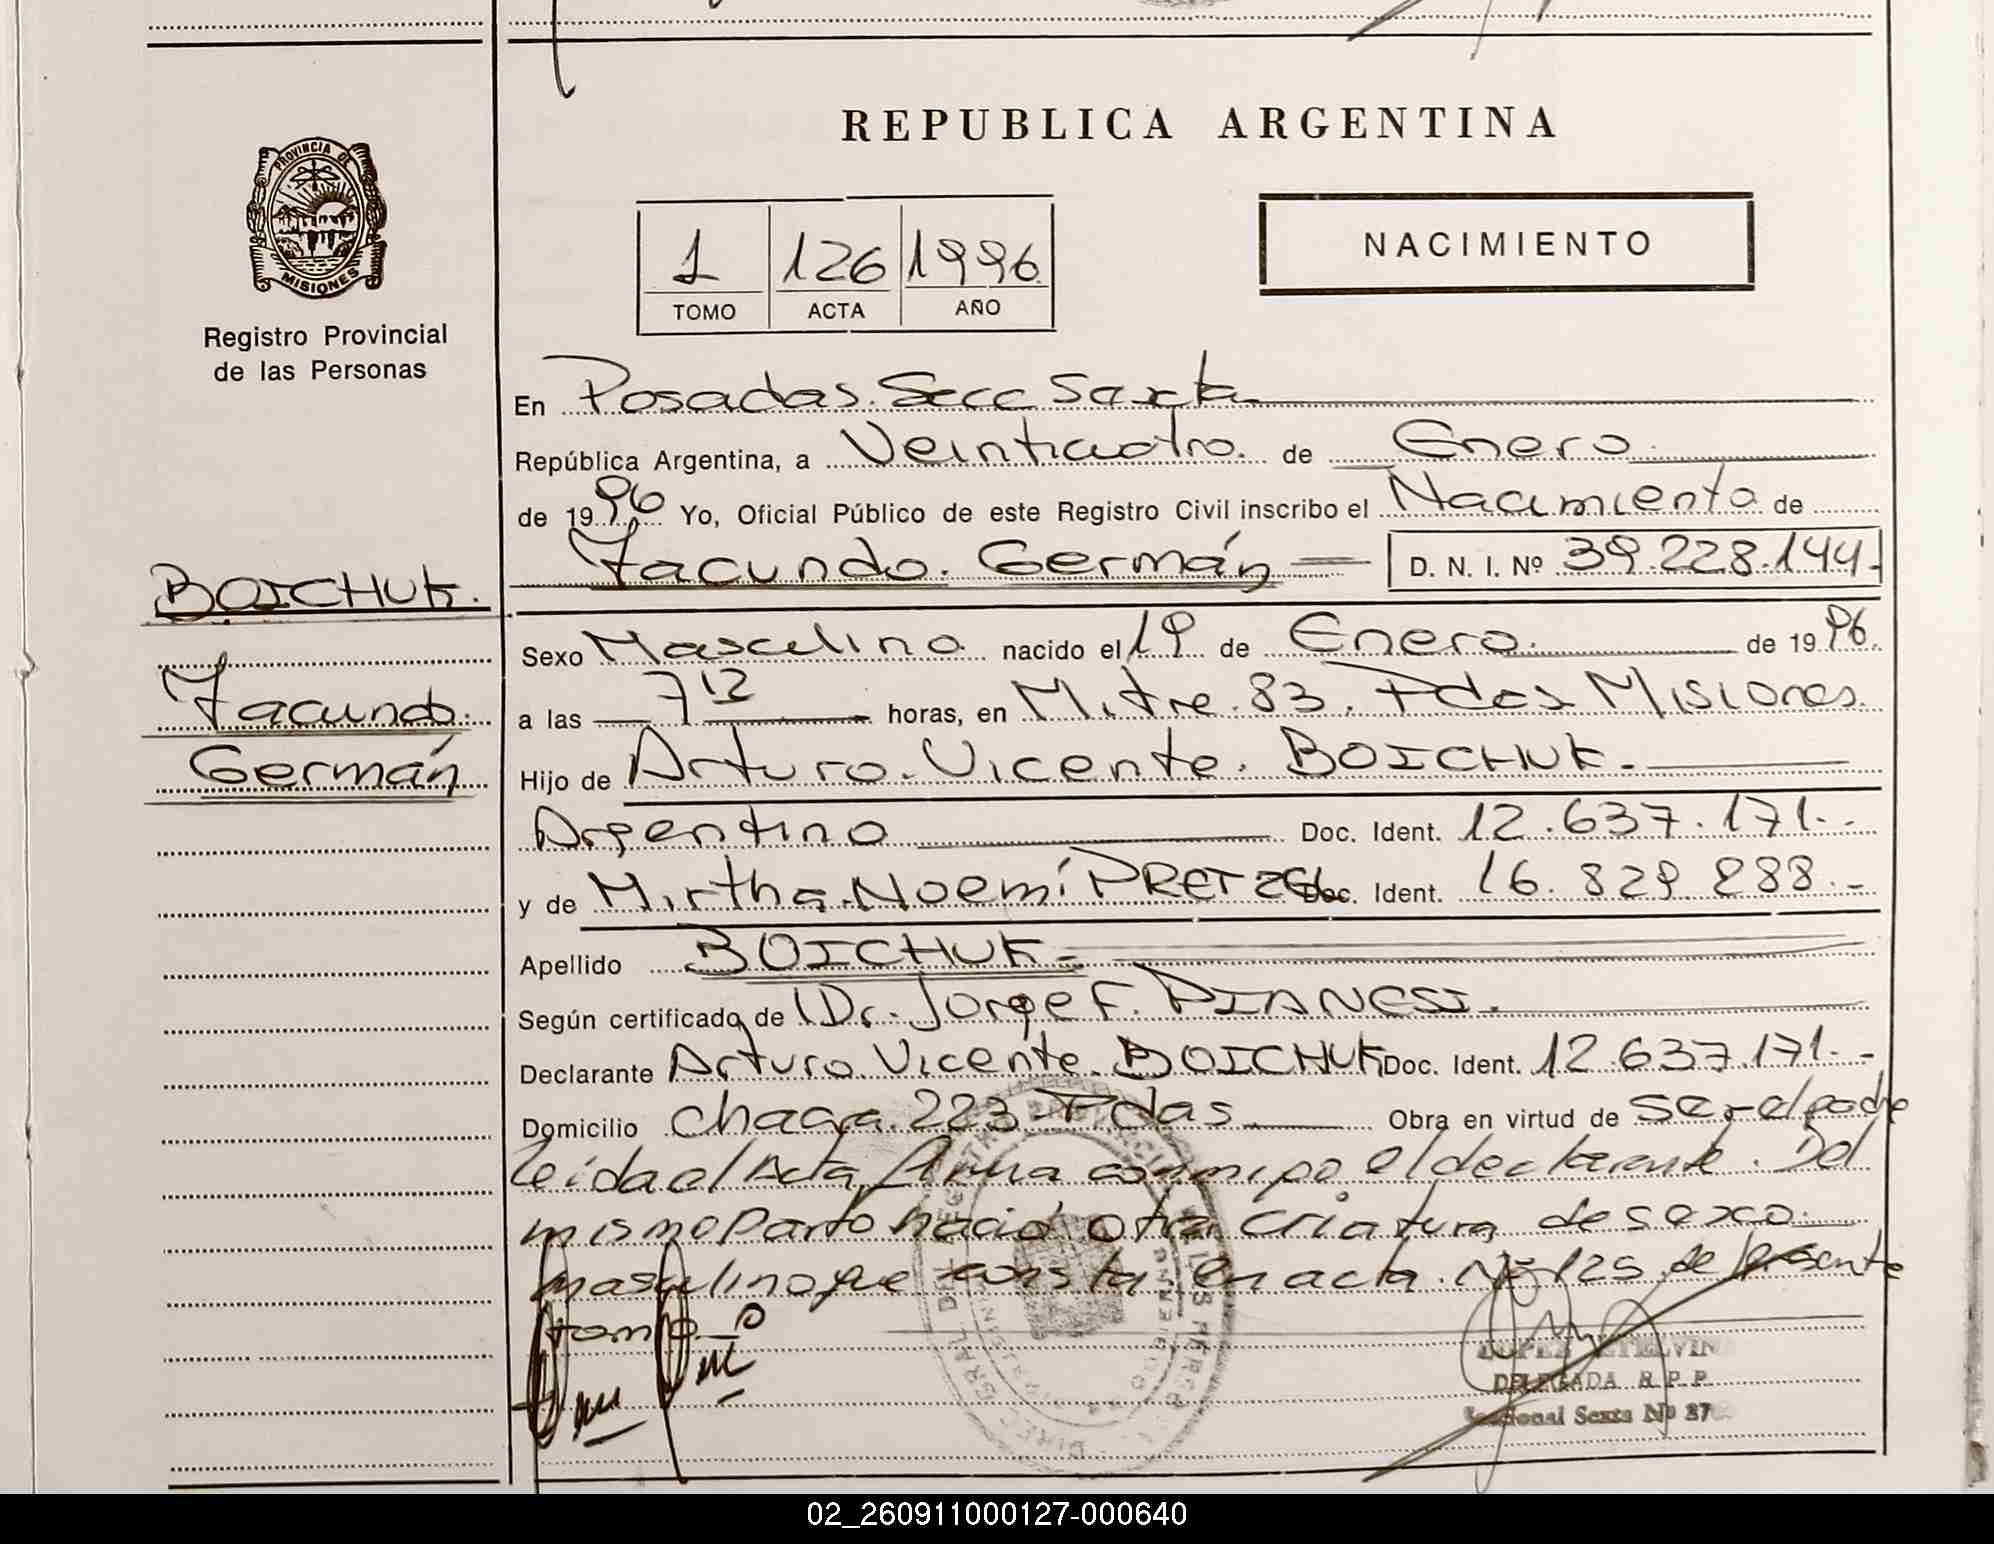 REPUBLICA ARGENTINA
PROVINCIA DE
MISIONES
Registro Provincial
de las Personas
1 126 1996
TOMO ACTA AÑO
NACIMIENTO
En Posadas. Secc Sexta
República Argentina, a Veinticuatro. de Enero.
de 1996 Yo, Oficial Público de este Registro Civil inscribo el Nacimiento de
Facundo. Germán D. N. I. Nº 39.228.144.
BOICHUK.
Facundo.
Germán
Sexo Masculino nacido el 19 de Enero. de 1996.
a las 7 12 horas, en Mitre. 83. Pdas Misiones.
Hijo de Arturo. Vicente. BOICHUK.
Argentino Doc. Ident. 12.637.171.-
y de Mirtha Noemí PRETZEL Doc. Ident. 16.829.288.-
Apellido BOICHUK
Según certificado de Dr. Jorge F. PIANESI.
Declarante Arturo. Vicente. BOICHUK Doc. Ident. 12.637.171.-
Domicilio chaca 223 Pdas Obra en virtud de ser el padre
leida el Acta, firma conmigo el declarante. Del
mismo parto nació otra criatura de sexo
masculino que consta en acta. Nº 125 de presente
tomo
LOPEZ ETELVINA
DELEGADA R. P. P.
Seccional Sexta Nº 87
02_260911000127-000640